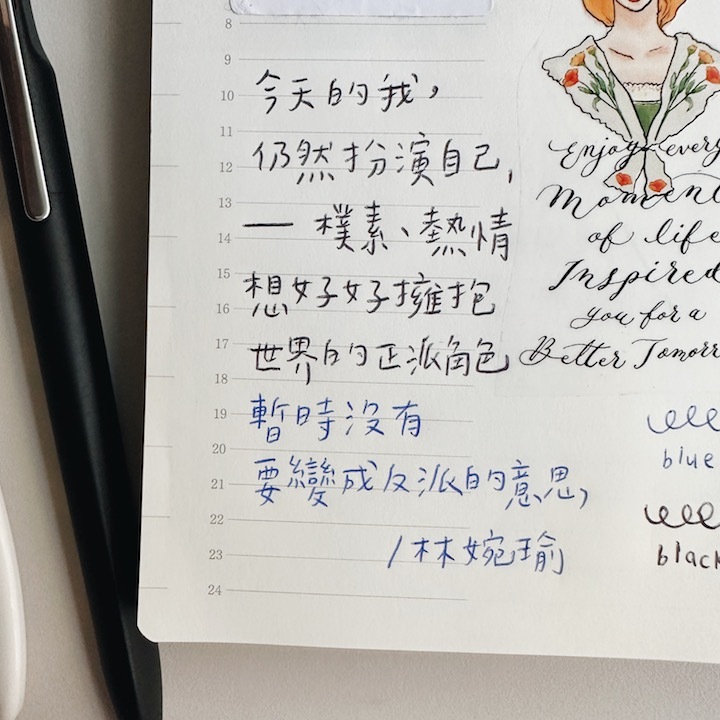 8
9
10
11
12
13
14
15
16
17
18
19
20
21
22
23
24
今天的我，
仍然扮演自己，
— 樸素、熱情
想好好擁抱
世界的正派角色
暫時沒有
要變成反派的意思，
/林婉瑜
Enjoy every
Moment
of life
Inspired
you for a
Better Tomorr
blue
black